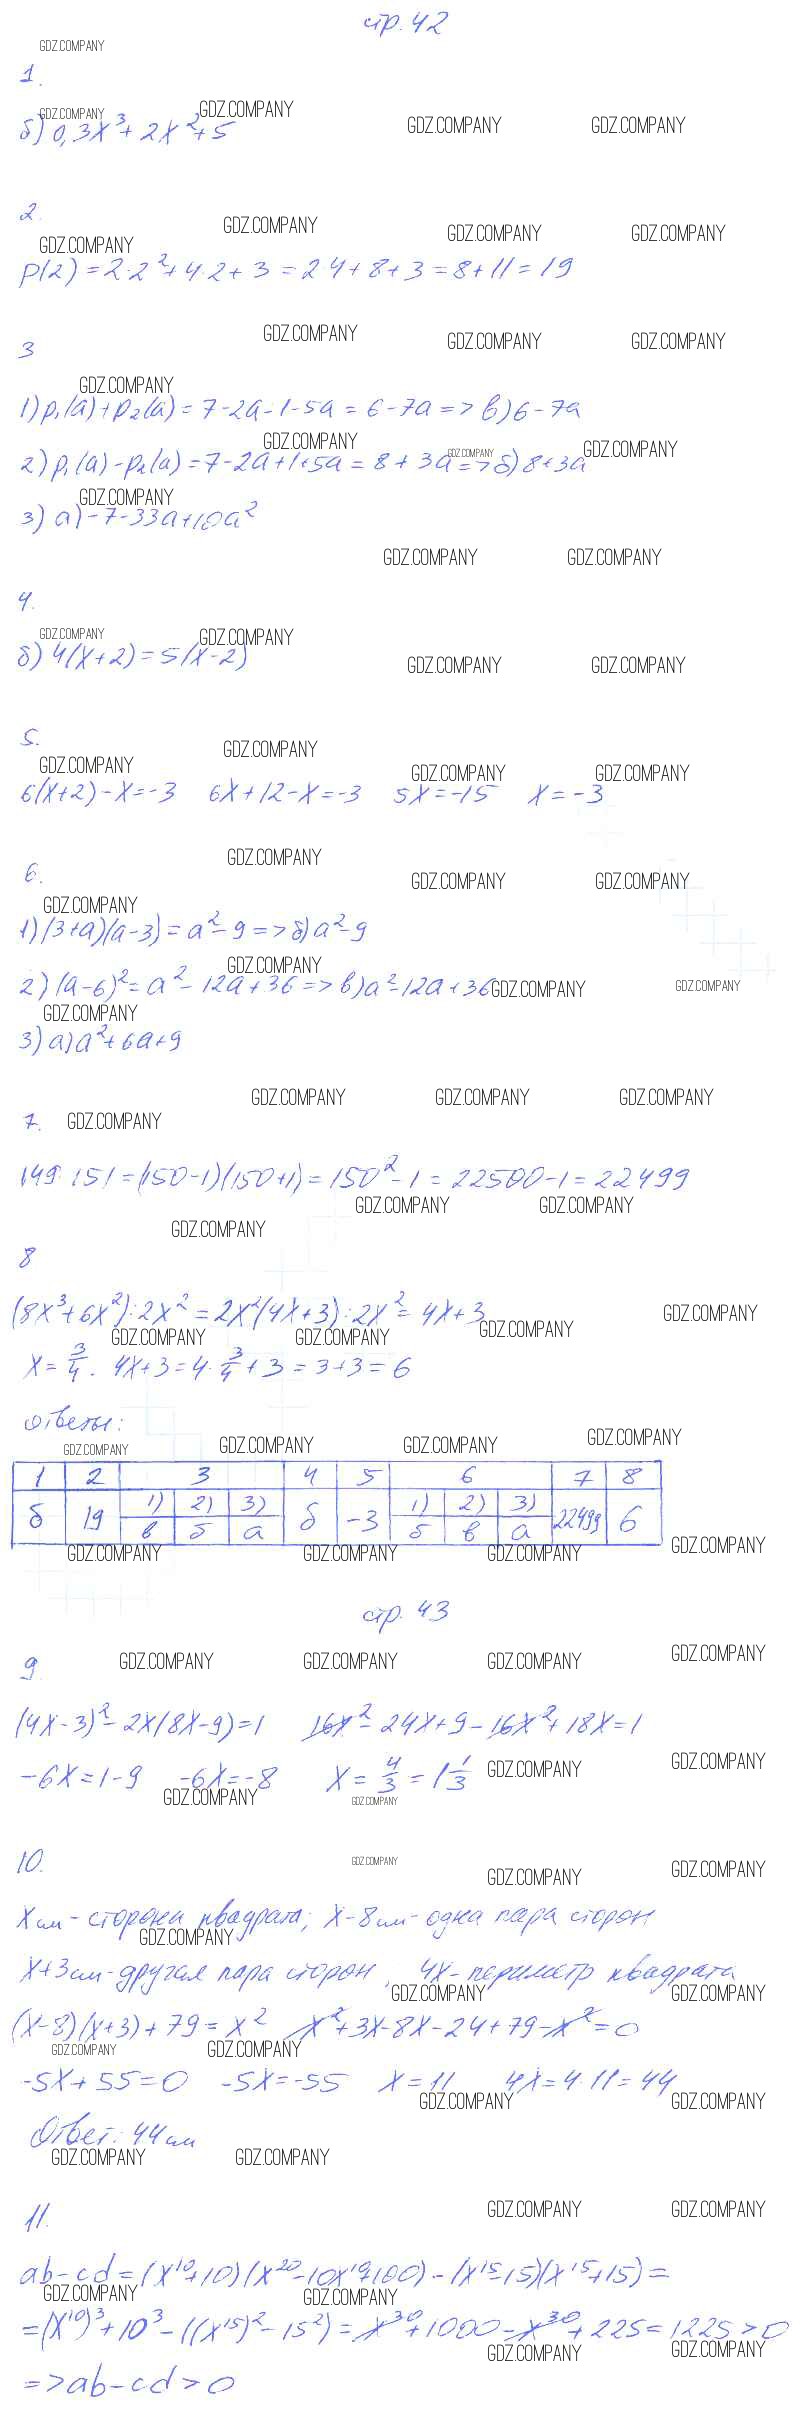 стр. 42
GDZ.COMPANY
1.
GDZ.COMPANY GDZ.COMPANY GDZ.COMPANY GDZ.COMPANY
б) 0,3x³+2x²+5
2.
GDZ.COMPANY GDZ.COMPANY GDZ.COMPANY GDZ.COMPANY
p(2)=2·2²+4·2+3=2·4+8+3=8+11=19
GDZ.COMPANY GDZ.COMPANY GDZ.COMPANY
3
GDZ.COMPANY
1) p₁(a)+p₂(a)=7-2a-1-5a=6-7a=>в)6-7a
GDZ.COMPANY GDZ.COMPANY GDZ.COMPANY
2) p₁(a)-p₂(a)=7-2a+1+5a=8+3a=>б)8+3a
GDZ.COMPANY
3) а)-7-33a+10a²
GDZ.COMPANY GDZ.COMPANY
4.
GDZ.COMPANY GDZ.COMPANY GDZ.COMPANY GDZ.COMPANY
б) 4(x+2)=5(x-2)
5.
GDZ.COMPANY GDZ.COMPANY GDZ.COMPANY GDZ.COMPANY
6(x+2)-x=-3 6x+12-x=-3 5x=-15 x=-3
GDZ.COMPANY GDZ.COMPANY GDZ.COMPANY
6.
GDZ.COMPANY
1)(3+a)(a-3)=a²-9=>б)a²-9
GDZ.COMPANY GDZ.COMPANY GDZ.COMPANY
2)(a-6)²=a²-12a+36=>в)a²-12a+36
GDZ.COMPANY
3)а)a²+6a+9
GDZ.COMPANY GDZ.COMPANY GDZ.COMPANY
7. GDZ.COMPANY
149·151=(150-1)(150+1)=150²-1=22500-1=22499
GDZ.COMPANY GDZ.COMPANY
GDZ.COMPANY
8
(8x³+6x²):2x²=2x²(4x+3):2x²=4x+3
GDZ.COMPANY GDZ.COMPANY GDZ.COMPANY GDZ.COMPANY
x=3/4. 4x+3=4·3/4+3=3+3=6
ответы:
GDZ.COMPANY GDZ.COMPANY GDZ.COMPANY GDZ.COMPANY
1 2 3 4 5 6 7 8
б 19 1) 2) 3) б -3 1) 2) 3) 22499 6
в б а б в а
GDZ.COMPANY GDZ.COMPANY GDZ.COMPANY GDZ.COMPANY
стр. 43
GDZ.COMPANY GDZ.COMPANY GDZ.COMPANY GDZ.COMPANY
9.
(4x-3)²-2x(8x-9)=1 16x²-24x+9-16x²+18x=1
-6x=1-9 -6x=-8 x=4/3=1 1/3
GDZ.COMPANY GDZ.COMPANY GDZ.COMPANY GDZ.COMPANY
10.
GDZ.COMPANY GDZ.COMPANY GDZ.COMPANY
x см-сторона квадрата; x-8см-одна пара сторон
GDZ.COMPANY
x+3см-другая пара сторон; 4x-периметр квадрата
GDZ.COMPANY GDZ.COMPANY
(x-8)(x+3)+79=x² x²+3x-8x-24+79-x²=0
GDZ.COMPANY GDZ.COMPANY
-5x+55=0 -5x=-55 x=11 4x=4·11=44
GDZ.COMPANY GDZ.COMPANY
Ответ: 44см
GDZ.COMPANY GDZ.COMPANY
11.
GDZ.COMPANY GDZ.COMPANY
ab-cd=(x¹⁰+10)(x²⁰-10x¹⁰+100)-(x¹⁵-15)(x¹⁵+15)=
GDZ.COMPANY GDZ.COMPANY
=(x¹⁰)³+10³-((x¹⁵)²-15²)=x³⁰+1000-x³⁰+225=1225>0
GDZ.COMPANY GDZ.COMPANY
=>ab-cd>0